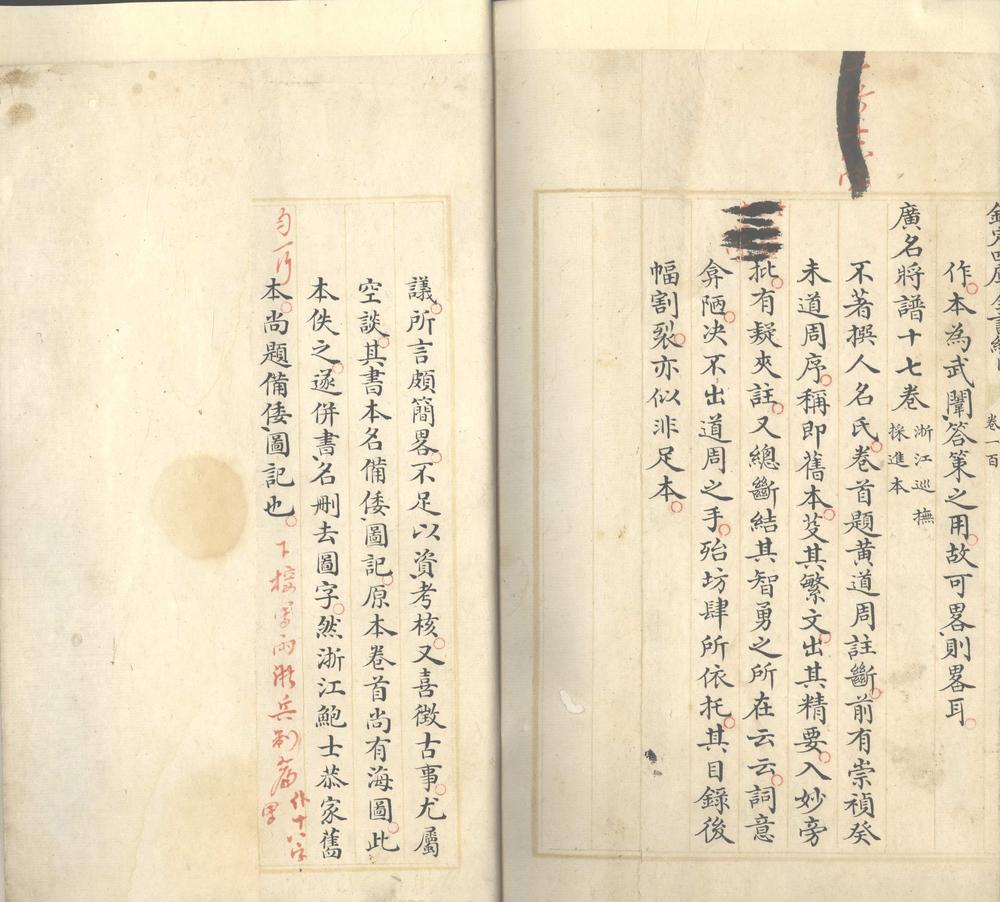 作本為武闈答策之用故可畧則畧耳
廣名將譜十七卷
浙江巡撫
採進本
不著撰人名氏卷首題黃道周註斷前有崇禎癸
未道周序稱即舊本芟其繁文出其精要入妙旁
批有疑夾註又總斷結其智勇之所在云云詞意
弇陋决不出道周之手殆坊肆所依托其目錄後
幅割裂亦似非足本
議所言頗簡畧不足以資考核又喜徵古事尤屬
空談其書本名備倭圖記原本卷首尚有海圖此
本佚之遂併書名刪去圖字然浙江鮑士恭家舊
本尚題備倭圖記也
下接寫兩浙兵制篇